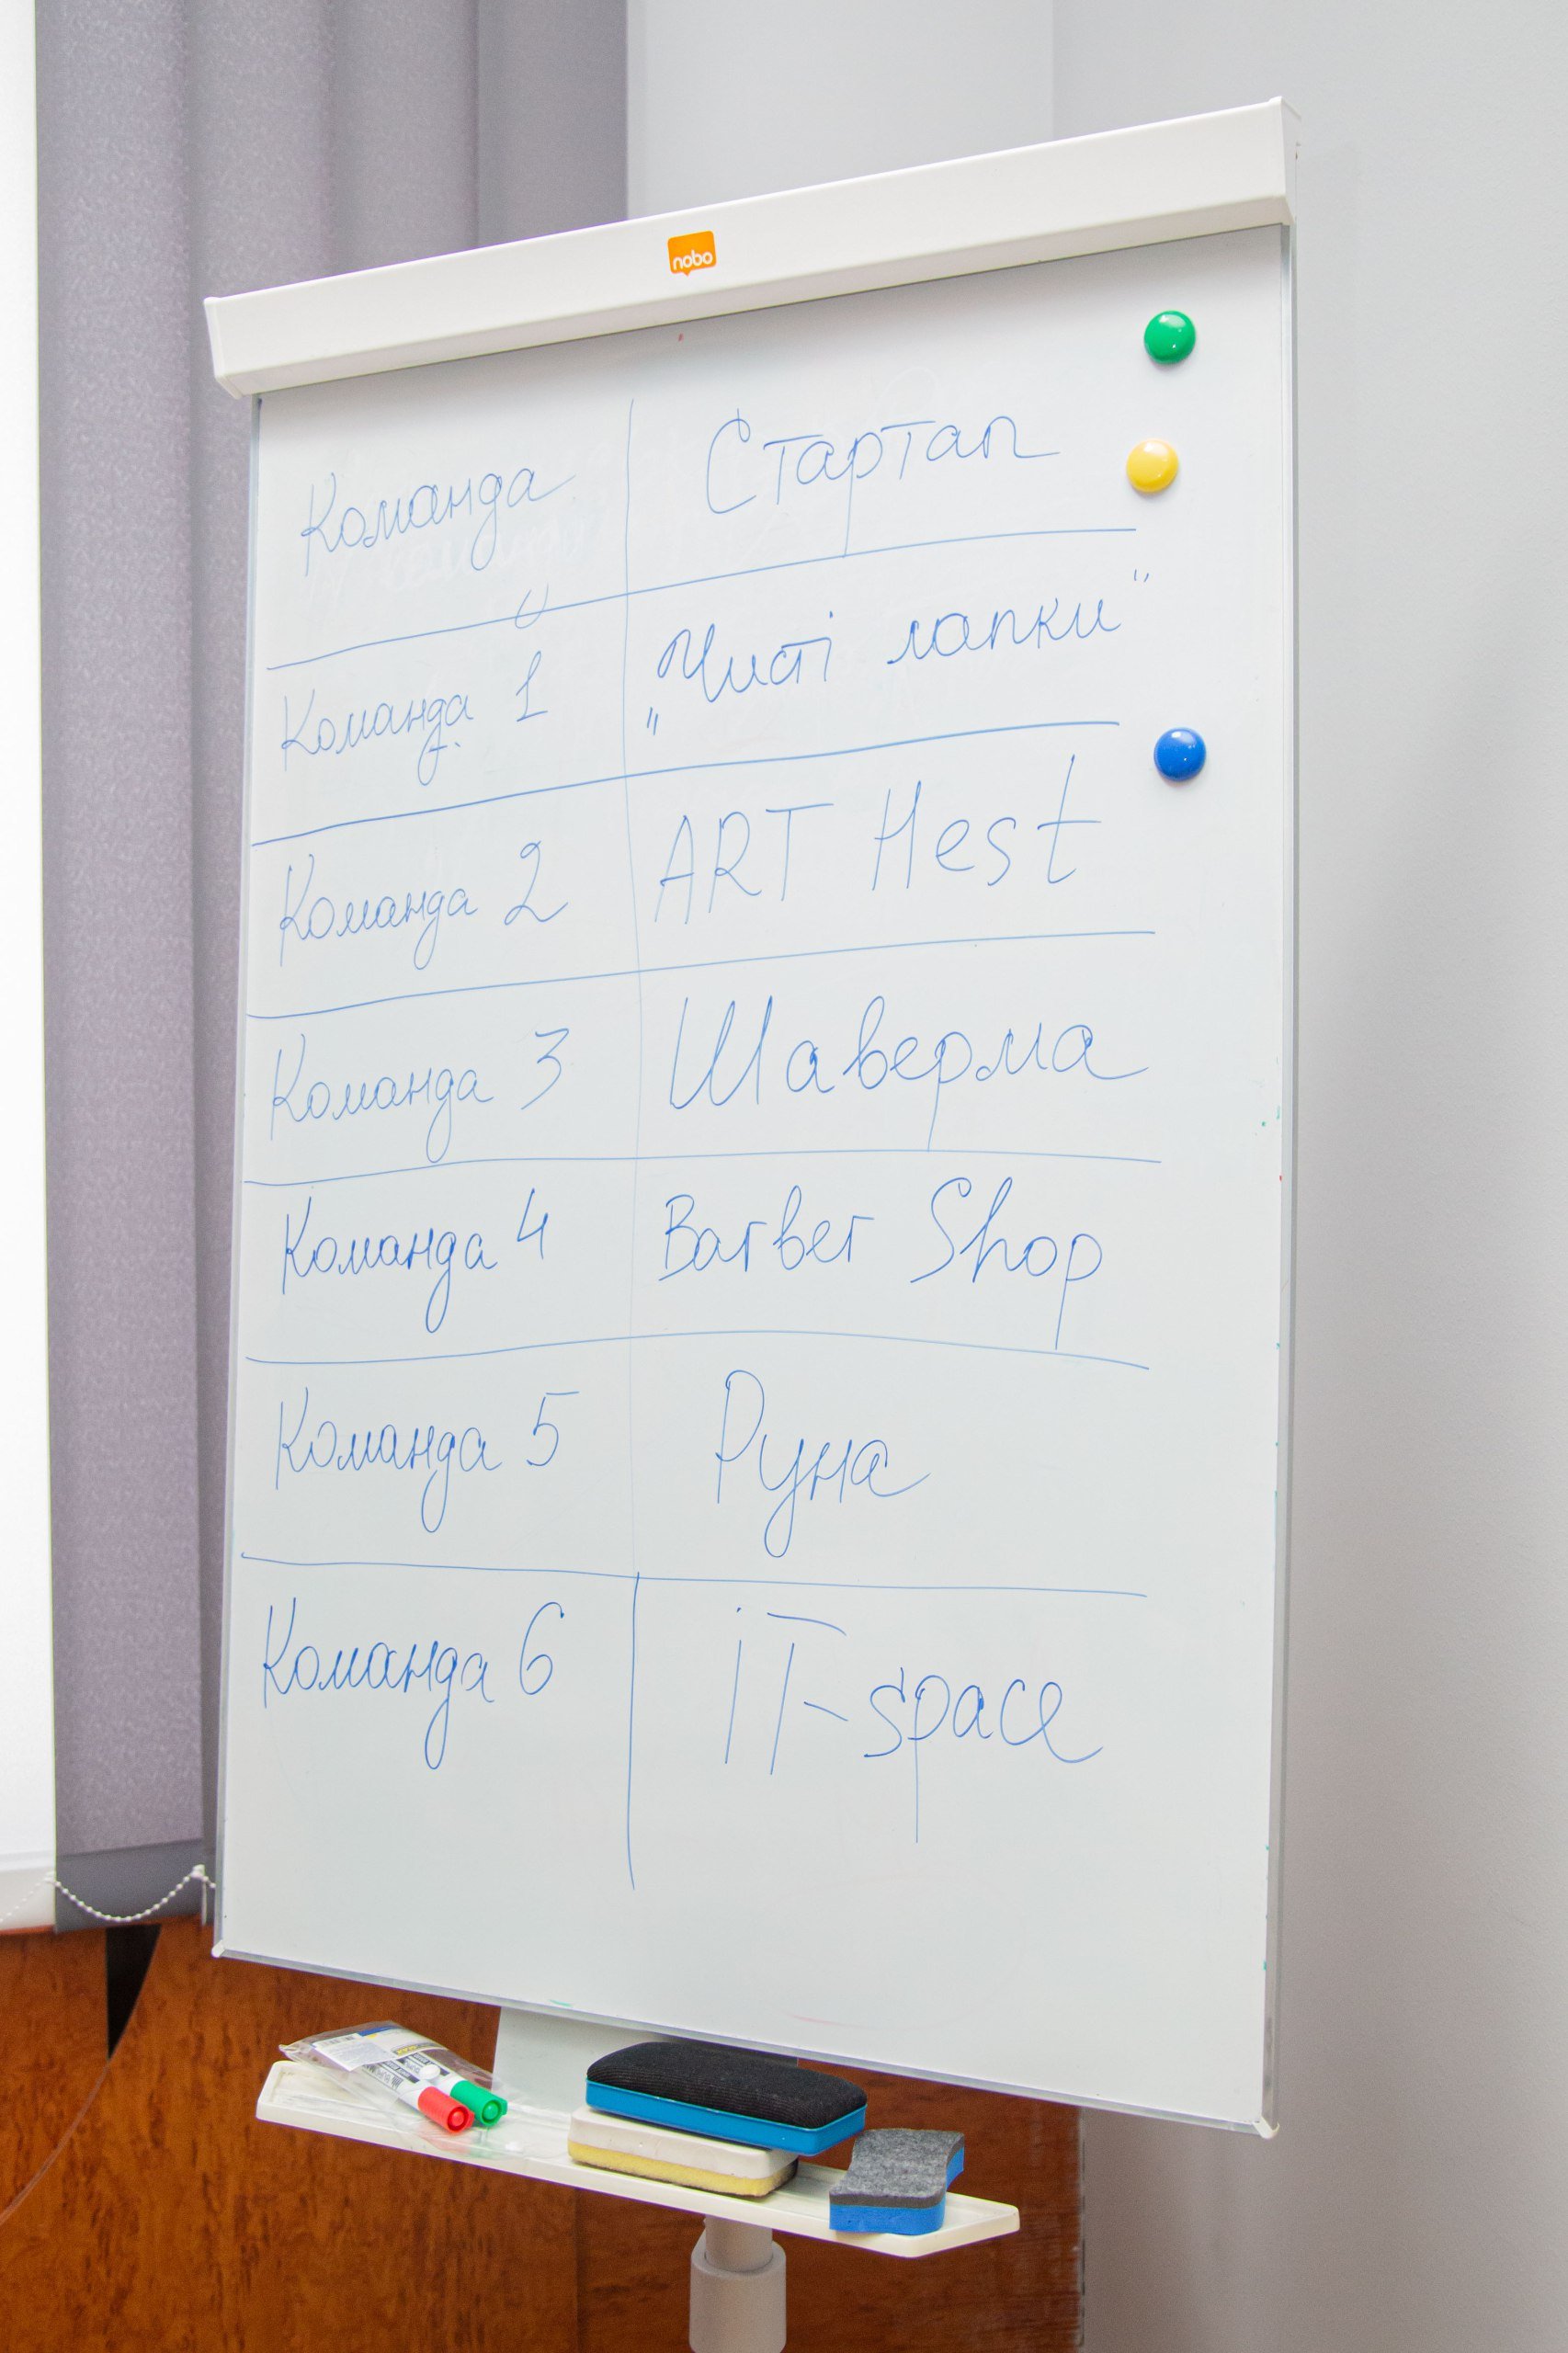 nobo
Команда Стартап
Команда 1 „Чисті лапки"
Команда 2 ART Hest
Команда 3 Шаверма
Команда 4 Barber Shop
Команда 5 Руна
Команда 6 iT-space